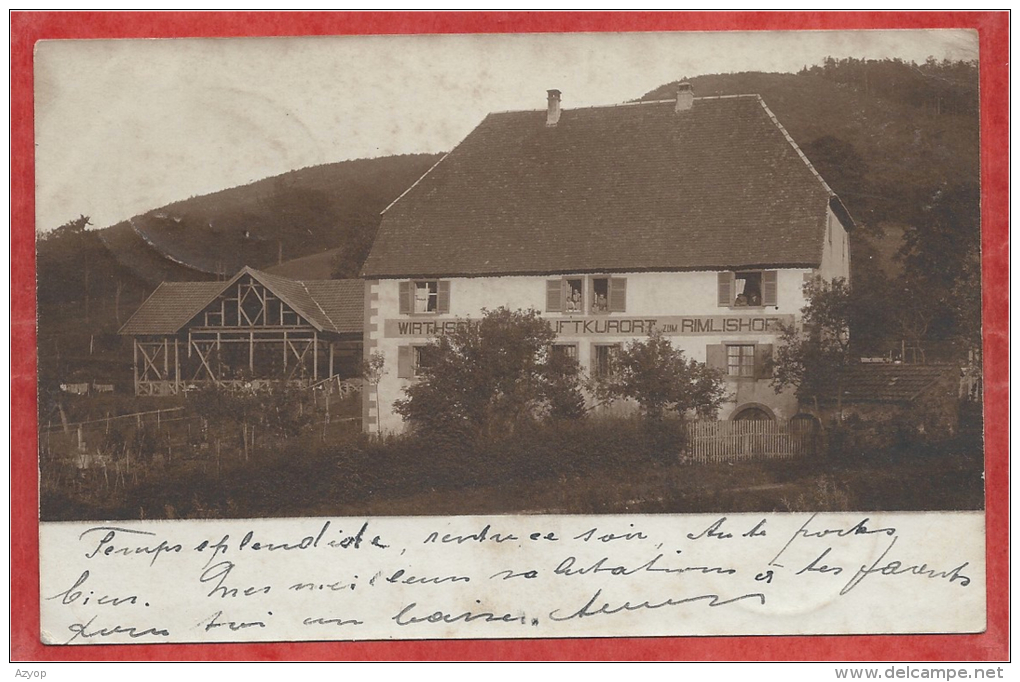 WIRTHSCH LUFTKURORT ZUM RIMLISHOF
Temps splendide, rentre ce soir, Aute porte
bien. Mes meilleurs salutations à tes parents
pour toi un baiser.
Azyop
www.delcampe.net